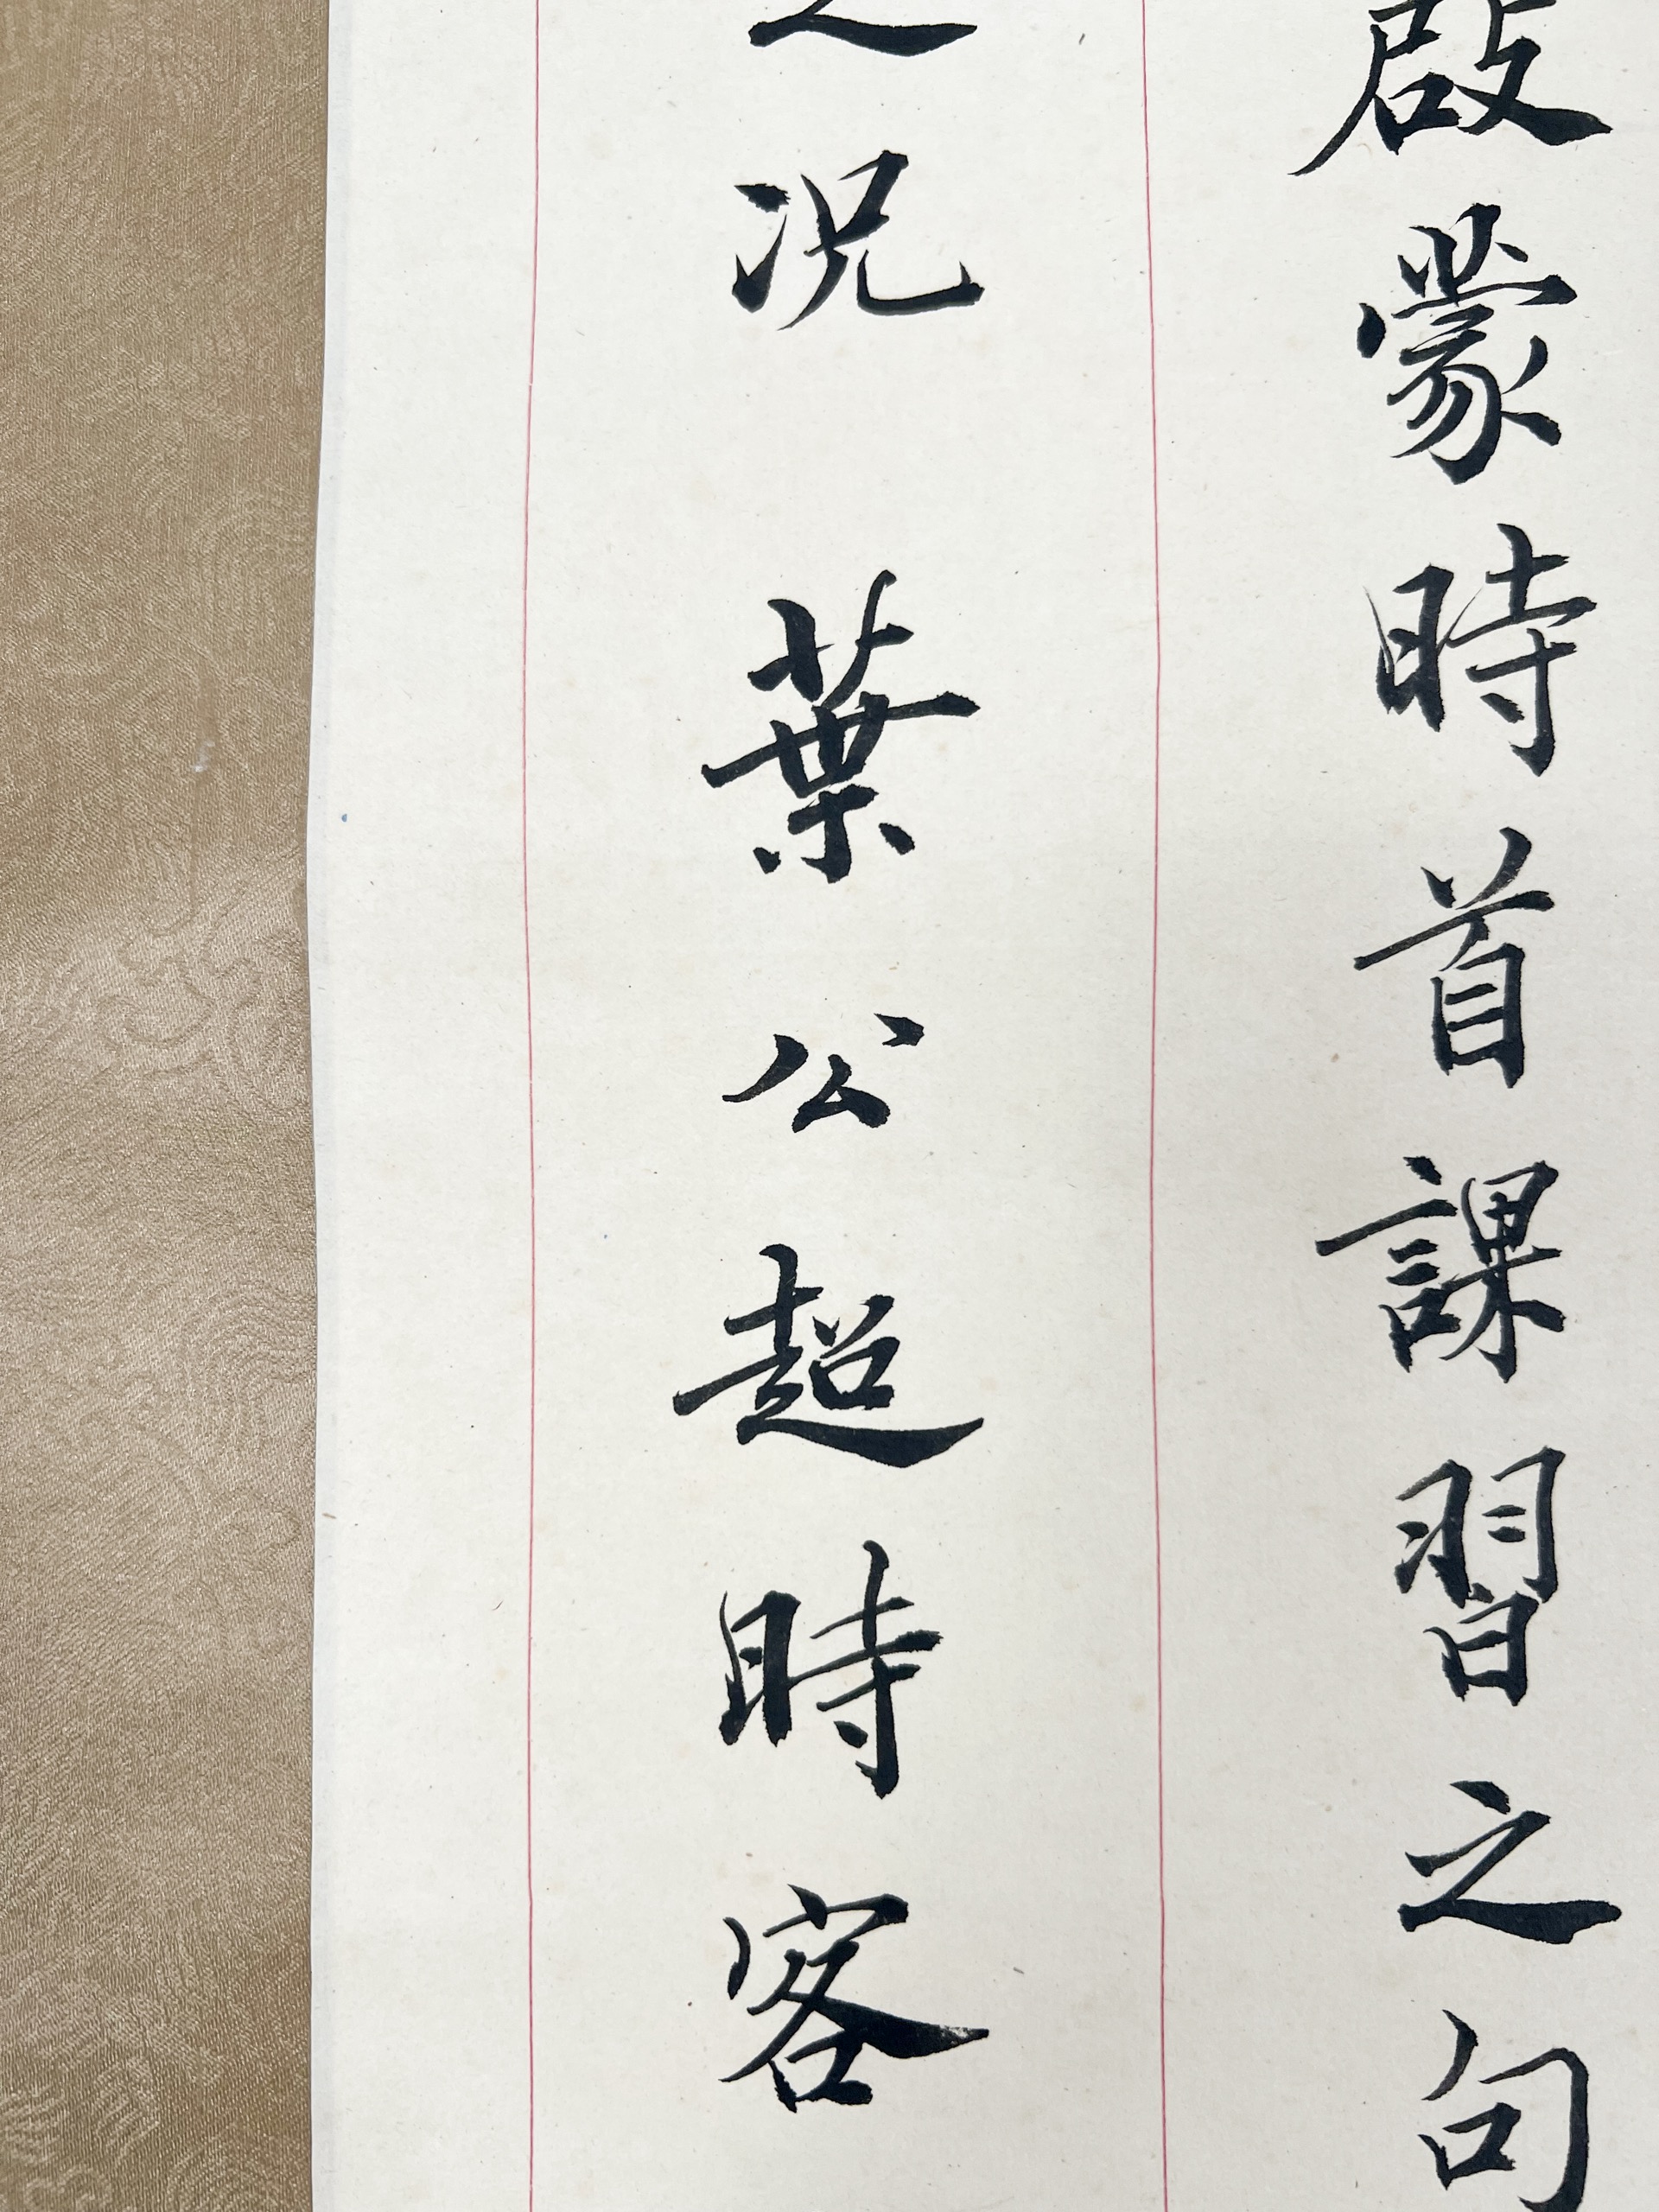 啟蒙時首課習之句
之况 葉公超時客